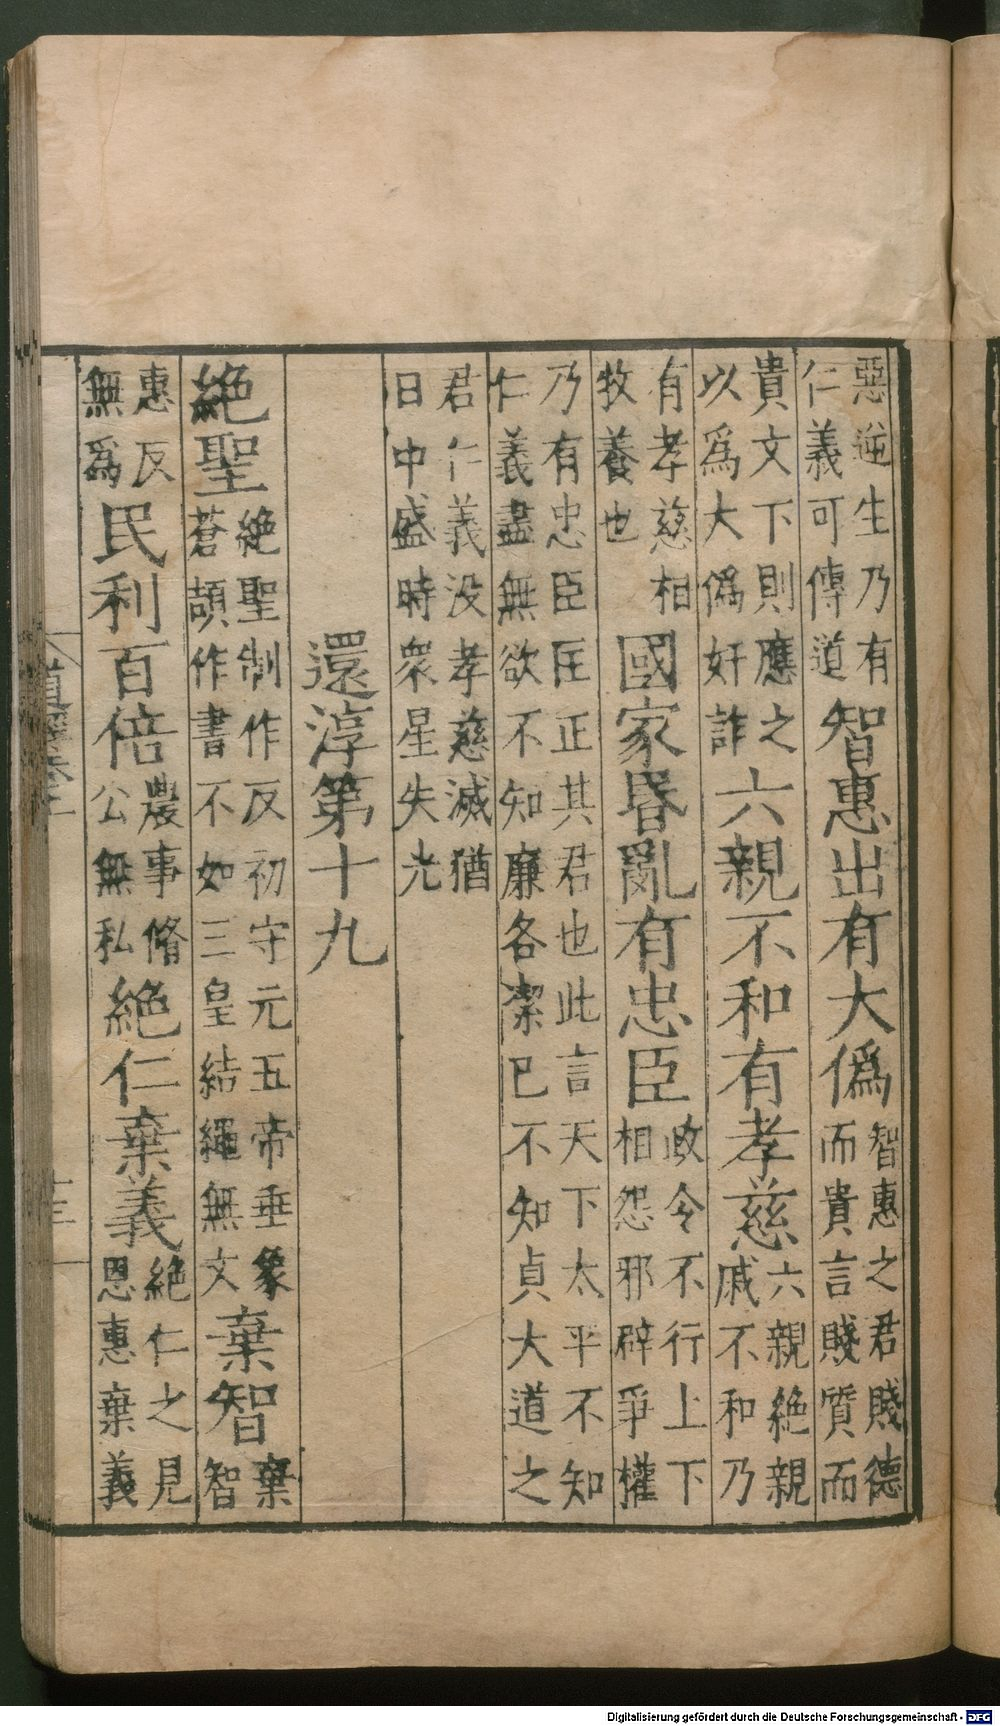 惡逆生乃有仁義可傳道智惠出有大僞智惠之君賤德而貴言賤質而
貴文下則應之以爲大僞奸詐六親不和有孝慈六親絶親戚不和乃
有孝慈相牧養也國家昬亂有忠臣政令不行上下相怨邪辟爭權
乃有忠臣匡正其君也此言天下太平不知仁義盡無欲不知廉各潔已不知貞大道之
君仁義没孝慈滅猶日中盛時衆星失光
還淳第十九
絶聖絶聖制作反初守元五帝垂象蒼頡作書不如三皇結繩無文棄智棄智
惠反無爲民利百倍農事脩公無私絶仁棄義絶仁之見恩惠棄義
Digitalisierung gefördert durch die Deutsche Forschungsgemeinschaft - DFG